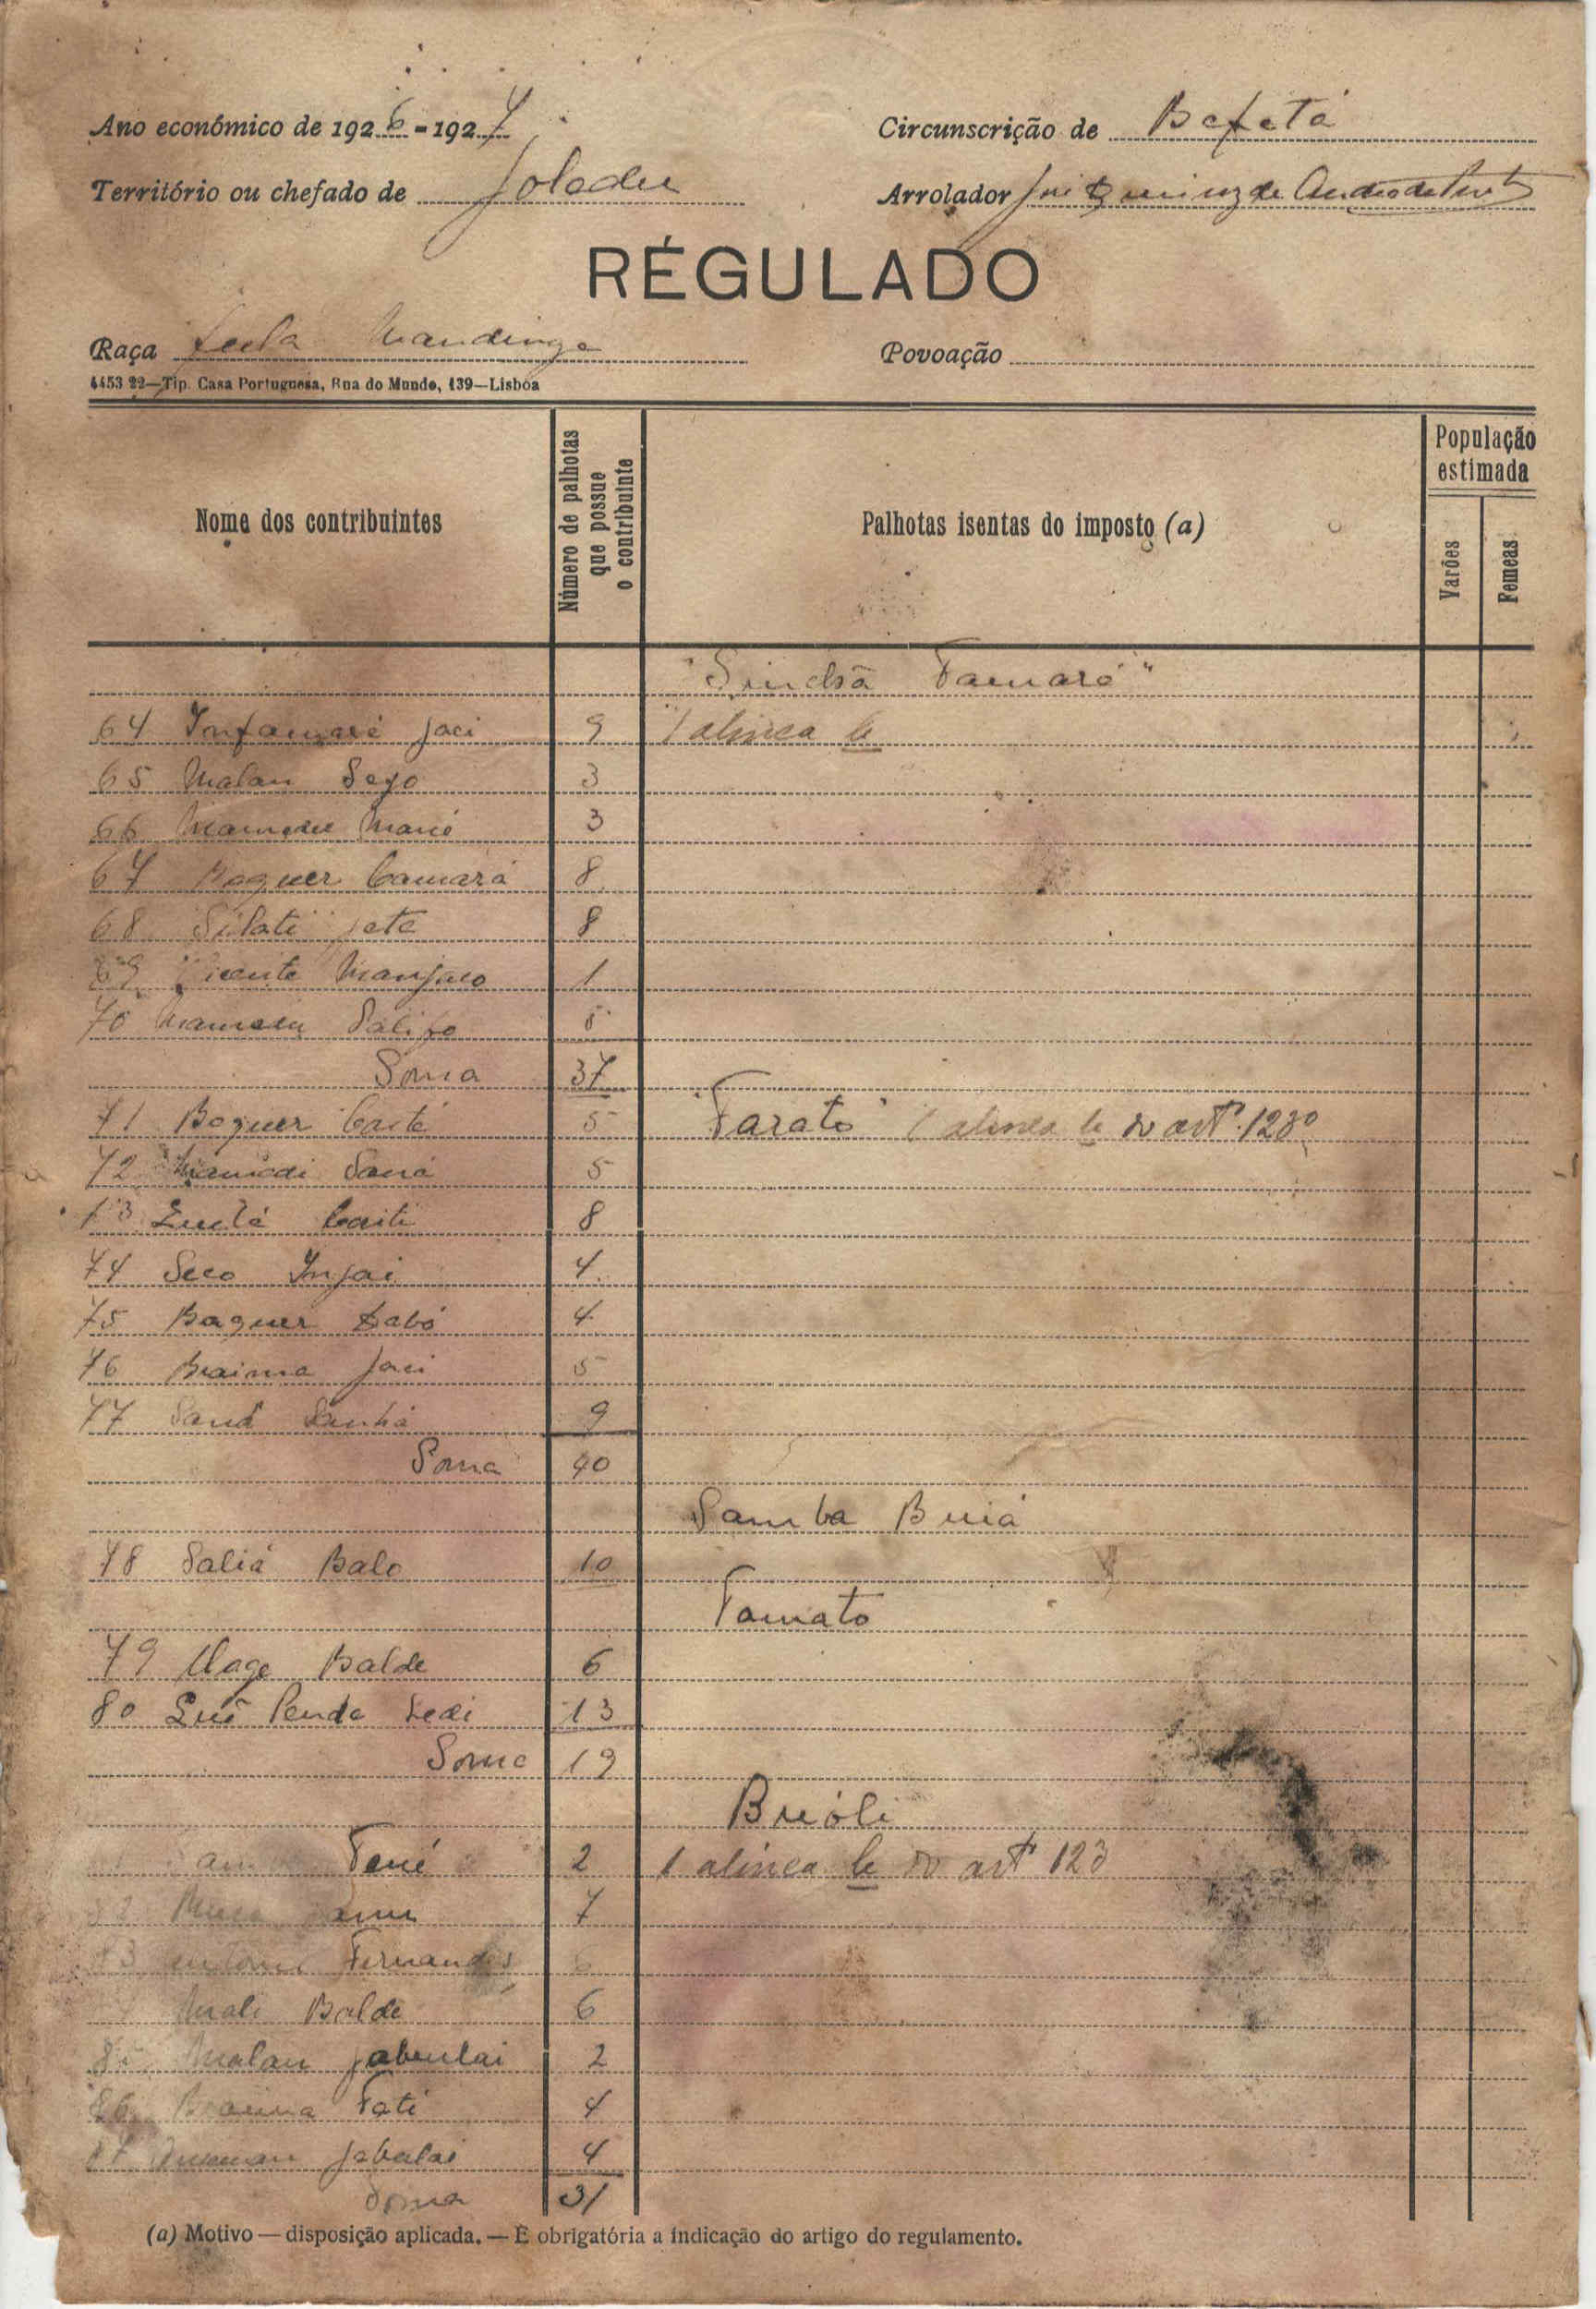 Ano económico de 1926-1927
Circunscrição de Bafatá
Território ou chefado de Joladu
Arrolador de Andrade
RÉGULADO
Raça Fula Mandinga
Povoação
4453 22—Tip. Casa Portuguesa, Rua do Mundo, 139—Lisboa
Nome dos contribuintes
Número de palhotas que possue o contribuinte
Palhotas isentas do imposto (a)
População estimada
Varões
Femeas
"Sinchã Tamará"
64 Infamará Jaci 9 1 alinea b
65 Malan Seyo 3
66 Mamadu Mané 3
67 Baquer Camará 8
68 Silati Jata 8
69 Vicente Manjaco 1
70 Mamadu Salifo 5
Soma 37
71 Boquer Caité 5 "Tarato" 1 alinea b do art. 123º
72 Mamadi Saná 5
73 Caiti 8
74 Seco Injai 4
75 Baquer Dabó 4
76 Braima Jaci 5
77 Saná Sanhá 9
Soma 40
Samba Buiá
78 Saliá Balo 10
Tamato
79 Uage Balde 6
80 Penda 13
Soma 19
Buóli
Fané 2 1 alinea b do art 123
7
83 Antonio Fernandes 6
Mali Balde 6
85 Malan Jabulai 2
86 Braima Fati 4
87 Jabulai 4
Soma 31
(a) Motivo — disposição aplicada. — É obrigatória a indicação do artigo do regulamento.